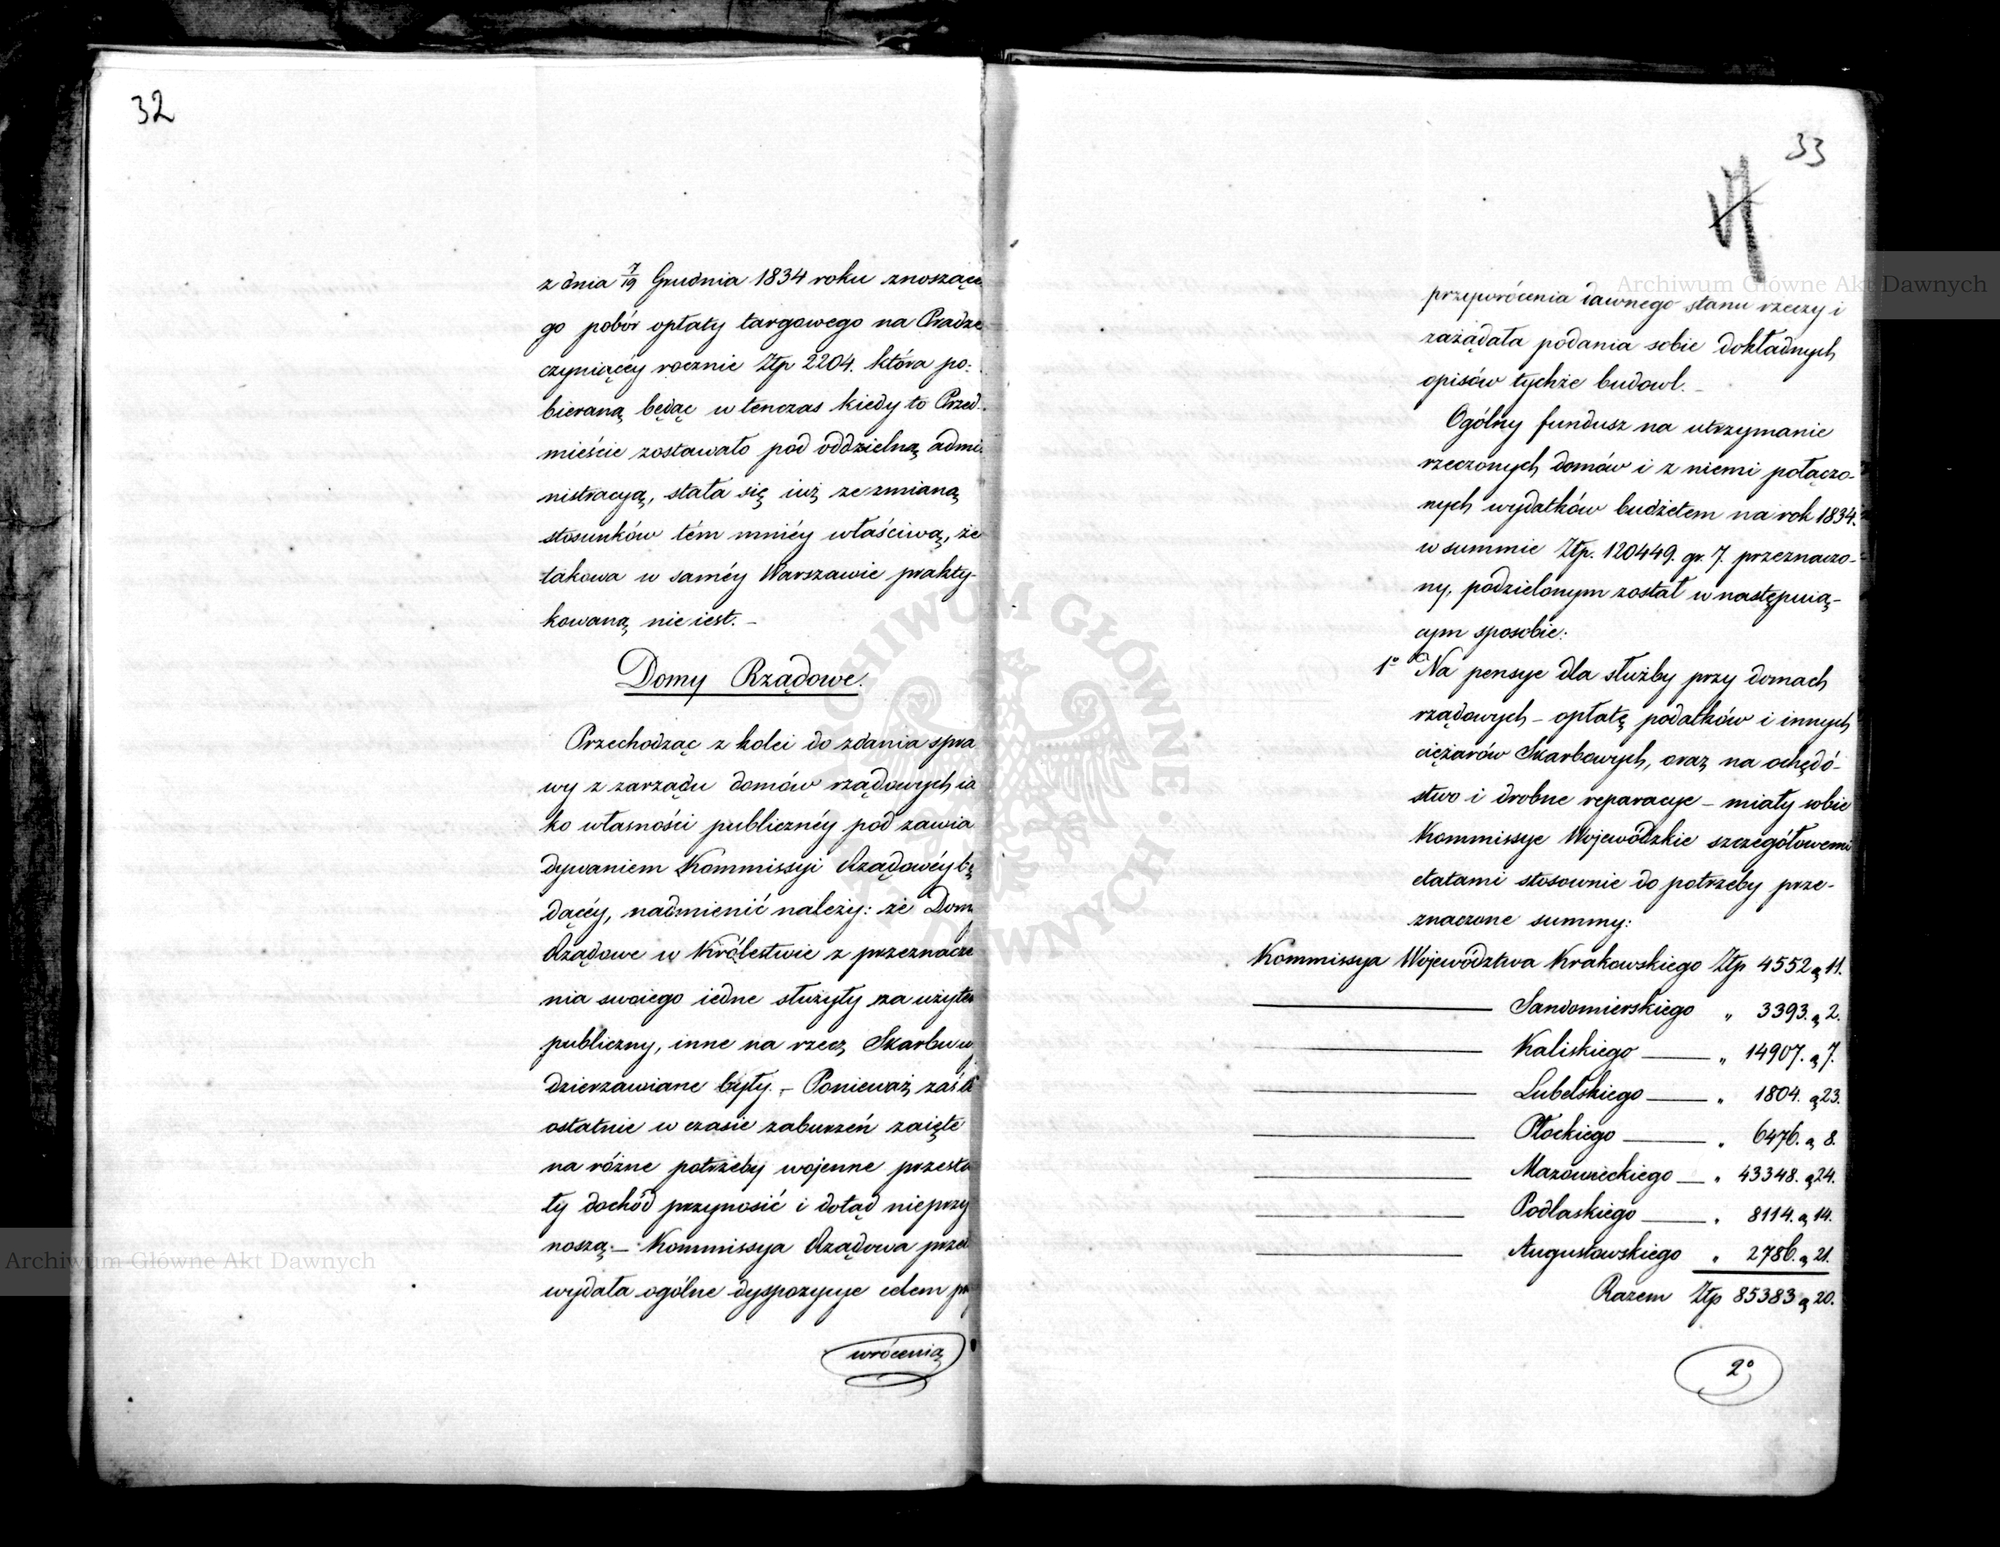 32
z dnia 7/19 Grudnia 1834 roku znoszące
go pobór opłaty targowego na Pradze
czyniącéy rocznie Złp 2204. która po:
bieraną będąc w tenczas kiedy to Przed.
mieście zostawało pod oddzielną admi
nistracyą, stała się iuż ze zmianą
stosunków tém mniéy właściwą, że
takowa w saméy Warszawie prakty-
kowaną nie iest. –
Domy Rządowe.
Przechodząc z kolei do zdania spra
wy z zarządu domów rządowych ia
ko własności publicznéy pod zawia
dywaniem Kommissyi Rządowéy bę
dącéy, nadmienić należy: że Domy
Rządowe w Królestwie z przeznacze
nia swoiego iedne służyły za użytek
publiczny, inne na rzecz Skarbu wy
dzierzawiane były. – Ponieważ zaś te
ostatnie w czasie zaburzeń zaięte
na różne potrzeby wojenne przesta
ły dochód przynosić i dotąd nieprzy
noszą. – Kommissya Rządowa przeto
wydała ogólne dyspozycye celem przy
wrócenia
33
przywrócenia dawnego stanu rzeczy i
zażądała podania sobie dokładnych
opisów tychże budowl. –
Ogólny fundusz na utrzymanie
rzeczonych domów i z niemi połączo-
nych wydatków budżetem na rok 1834.
w summie Złp. 120449. gr. 7. przeznaczo-
ny, podzielonym został w następuią-
cym sposobie:
1° Na pensye dla służby przy domach
rządowych – opłatę podatków i innych
ciężarów Skarbowych, oraz na ochędó-
stwo i drobne reparacye – miały sobie
Kommissye Wojewódzkie szczegółowemi
etatami stosownie do potrzeby prze-
znaczone summy:
Kommissya Województwa Krakowskiego Złp 4552 g 11.
Sandomierskiego „ 3393. g 2.
Kaliskiego „ 14907. g 7.
Lubelskiego „ 1804. g 23.
Płockiego „ 6476. g 8.
Mazowieckiego „ 43348. g 24.
Podlaskiego „ 8114. g 14.
Augustowskiego „ 2786. g 21.
Razem Złp 85383 g 20.
2°
Archiwum Główne Akt Dawnych
Archiwum Główne Akt Dawnych
ARCHIWUM GŁÓWNE AKT DAWNYCH